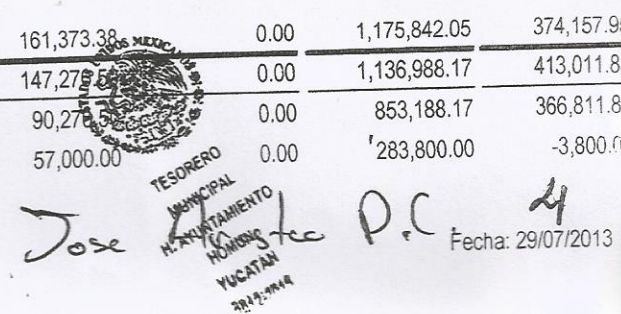 161,373.38 0.00 1,175,842.05 374,157.9
0.00 1,136,988.17 413,011.8
0.00 853,188.17 366,811.8
57,000.00 0.00 283,800.00 -3,800.
MEXICA
TESORERO
MUNICIPAL
H. AYUNTAMIENTO
YUCATAN
Jose P.C.
Fecha: 29/07/2013